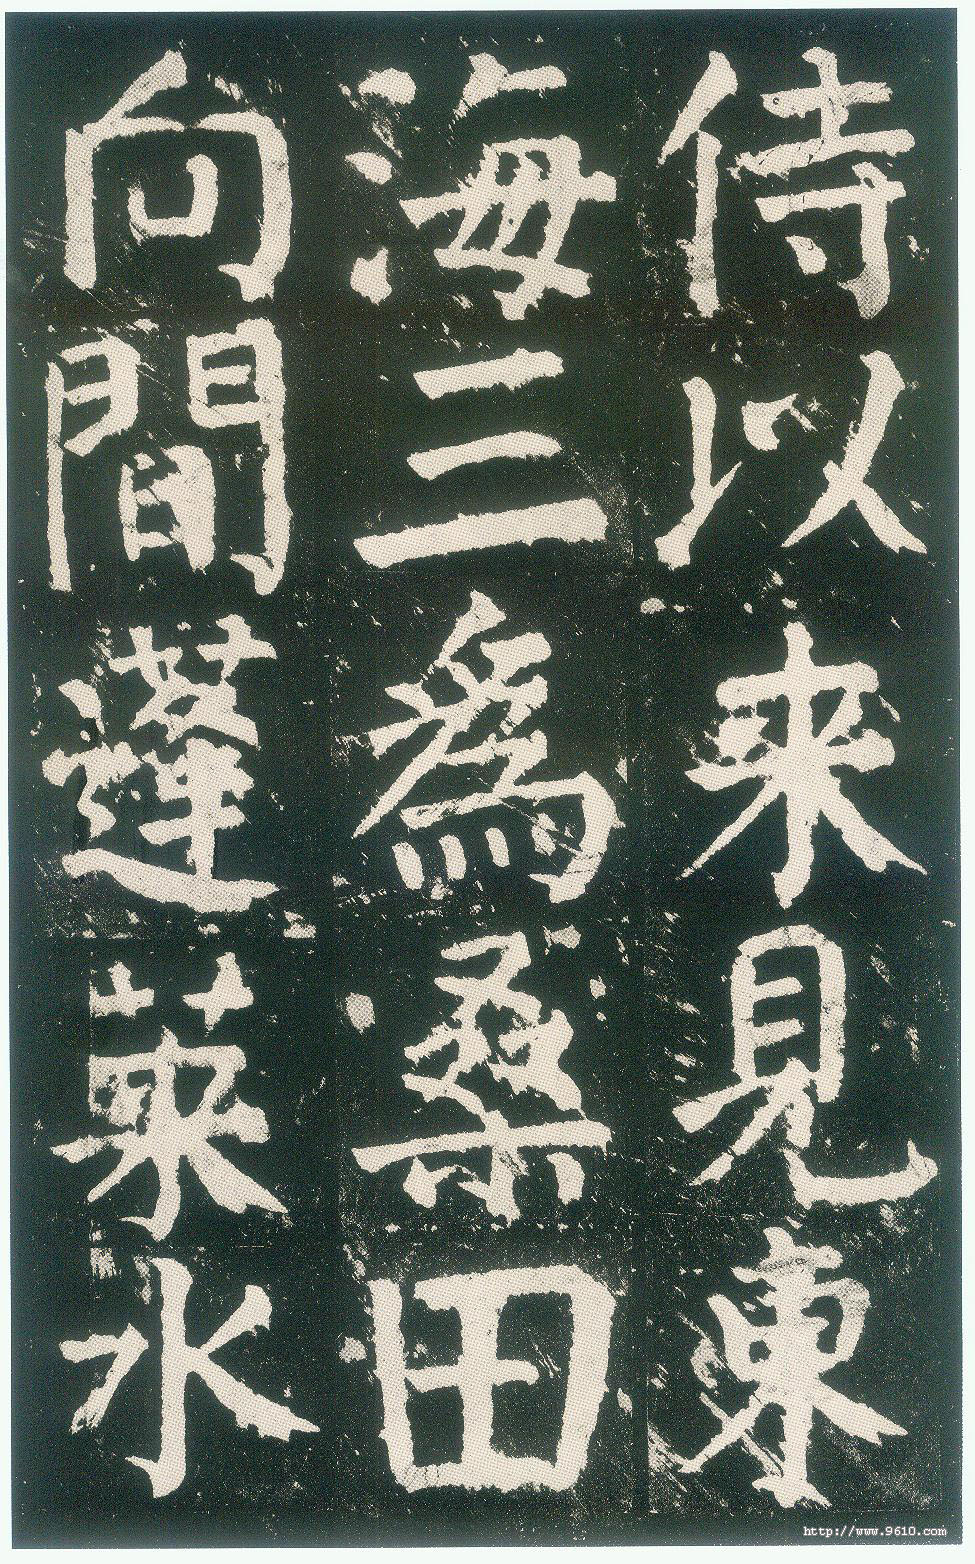 侍以来見東
海三爲桑田
向間蓬萊水
http://www.9610.com